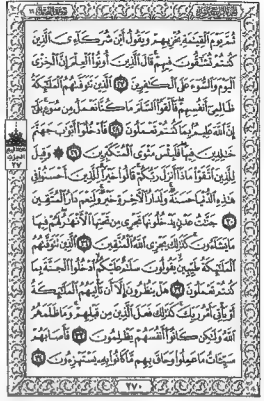 ثُمَّ يَوْمَ ٱلْقِيَٰمَةِ يُخْزِيهِمْ وَيَقُولُ أَيْنَ شُرَكَآءِىَ ٱلَّذِينَ
كُنتُمْ تُشَٰٓقُّونَ فِيهِمْ قَالَ ٱلَّذِينَ أُوتُوا۟ ٱلْعِلْمَ إِنَّ ٱلْخِزْىَ
ٱلْيَوْمَ وَٱلسُّوٓءَ عَلَى ٱلْكَٰفِرِينَ ٢٧ ٱلَّذِينَ تَتَوَفَّىٰهُمُ ٱلْمَلَٰٓئِكَةُ
ظَالِمِىٓ أَنفُسِهِمْ فَأَلْقَوُا۟ ٱلسَّلَمَ مَا كُنَّا نَعْمَلُ مِن سُوٓءٍۭ بَلَىٰٓ
إِنَّ ٱللَّهَ عَلِيمٌۢ بِمَا كُنتُمْ تَعْمَلُونَ ٢٨ فَٱدْخُلُوٓا۟ أَبْوَٰبَ جَهَنَّمَ
خَٰلِدِينَ فِيهَا فَلَبِئْسَ مَثْوَى ٱلْمُتَكَبِّرِينَ ٢٩ وَقِيلَ
لِلَّذِينَ ٱتَّقَوْا۟ مَاذَآ أَنزَلَ رَبُّكُمْ قَالُوا۟ خَيْرًا لِّلَّذِينَ أَحْسَنُوا۟ فِى
هَٰذِهِ ٱلدُّنْيَا حَسَنَةٌ وَلَدَارُ ٱلْءَاخِرَةِ خَيْرٌ وَلَنِعْمَ دَارُ ٱلْمُتَّقِينَ
٣٠ جَنَّٰتُ عَدْنٍ يَدْخُلُونَهَا تَجْرِى مِن تَحْتِهَا ٱلْأَنْهَٰرُ لَهُمْ فِيهَا
مَا يَشَآءُونَ كَذَٰلِكَ يَجْزِى ٱللَّهُ ٱلْمُتَّقِينَ ٣١ ٱلَّذِينَ تَتَوَفَّىٰهُمُ
ٱلْمَلَٰٓئِكَةُ طَيِّبِينَ يَقُولُونَ سَلَٰمٌ عَلَيْكُمُ ٱدْخُلُوا۟ ٱلْجَنَّةَ بِمَا
كُنتُمْ تَعْمَلُونَ ٣٢ هَلْ يَنظُرُونَ إِلَّآ أَن تَأْتِيَهُمُ ٱلْمَلَٰٓئِكَةُ
أَوْ يَأْتِىَ أَمْرُ رَبِّكَ كَذَٰلِكَ فَعَلَ ٱلَّذِينَ مِن قَبْلِهِمْ وَمَا ظَلَمَهُمُ
ٱللَّهُ وَلَٰكِن كَانُوٓا۟ أَنفُسَهُمْ يَظْلِمُونَ ٣٣ فَأَصَابَهُمْ
سَيِّـَٔاتُ مَا عَمِلُوا۟ وَحَاقَ بِهِم مَّا كَانُوا۟ بِهِۦ يَسْتَهْزِءُونَ ٣٤
٢٧٠